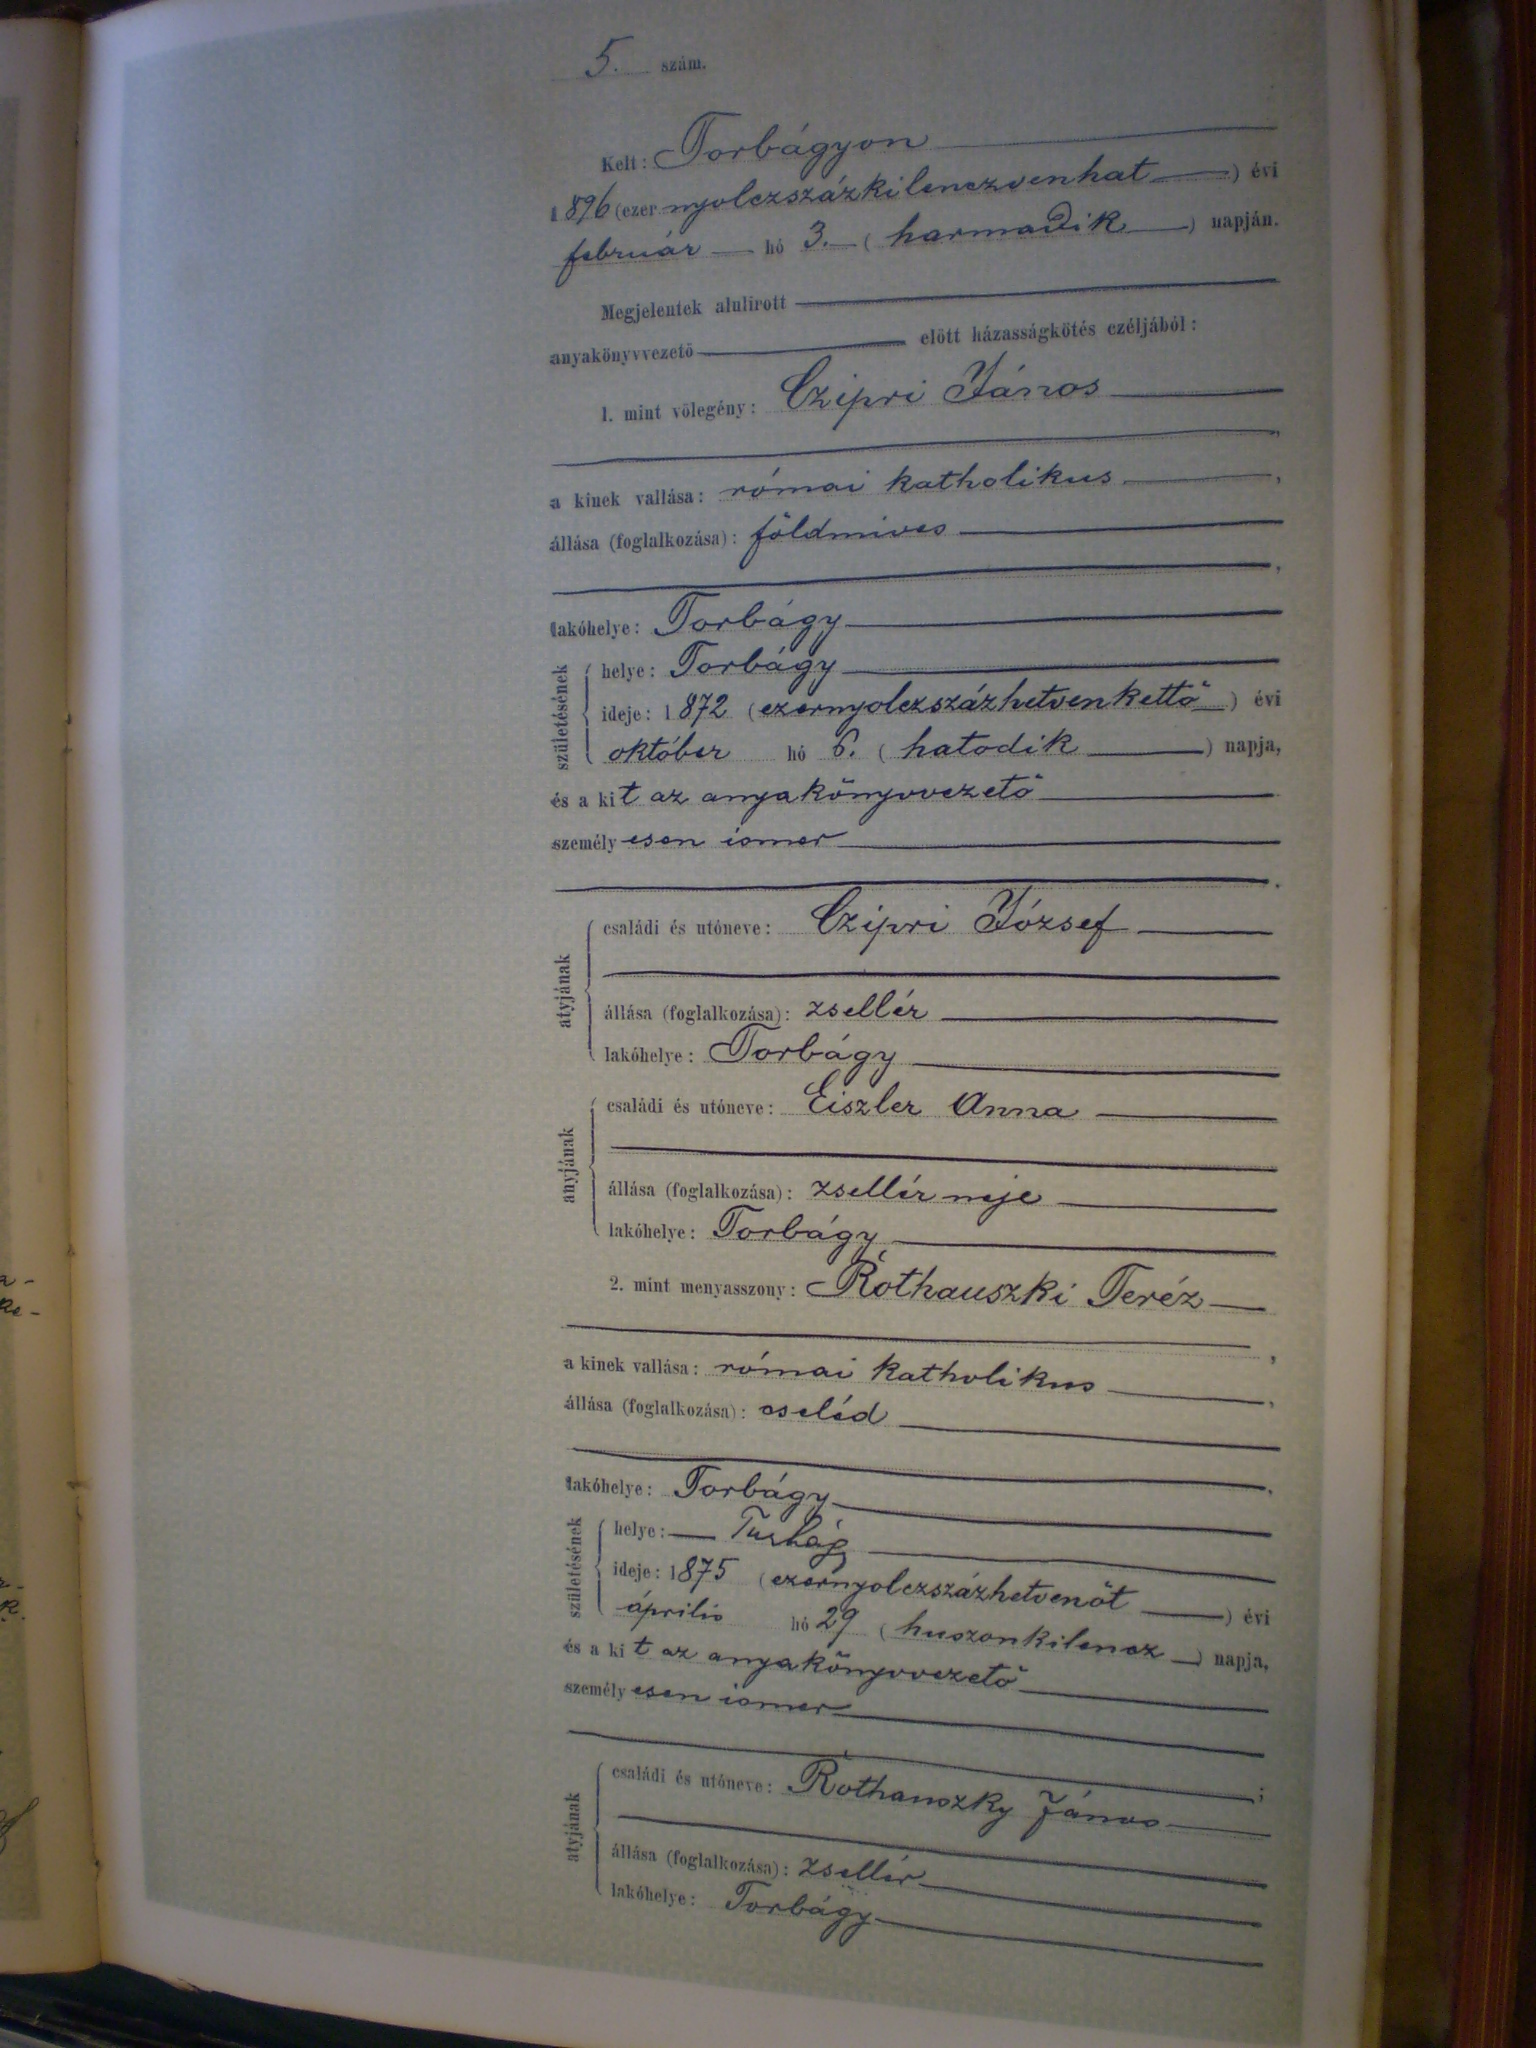 5. szám.
Kelt: Torbágyon
1896 (ezer nyolczszázkilenczvenhat) évi
február hó 3. (harmadik) napján.
Megjelentek alulirott
anyakönyvvezető előtt házasságkötés czéljából:
1. mint vőlegény: Czipri János
,
a kinek vallása: római katholikus ,
állása (foglalkozása): földmives
,
lakóhelye: Torbágy
születésének
helye: Torbágy
ideje: 1872 (ezernyolczszázhetvenkettő) évi
október hó 6. (hatodik) napja,
és a kit az anyakönyvvezető
személyesen ismer
.
atyjának
családi és utóneve: Czipri József
állása (foglalkozása): zsellér
lakóhelye: Torbágy
anyjának
családi és utóneve: Eiszler Anna
állása (foglalkozása): zsellér neje
lakóhelye: Torbágy
2. mint menyasszony: Rothauszki Teréz
,
a kinek vallása: római katholikus ,
állása (foglalkozása): cseléd
,
lakóhelye: Torbágy
születésének
helye:
ideje: 1875 (ezernyolczszázhetvenöt) évi
április hó 29 (huszonkilencz) napja,
és a kit az anyakönyvvezető
személyesen ismer
;
atyjának
családi és utóneve: Rothauszky János
állása (foglalkozása): zsellér
lakóhelye: Torbágy